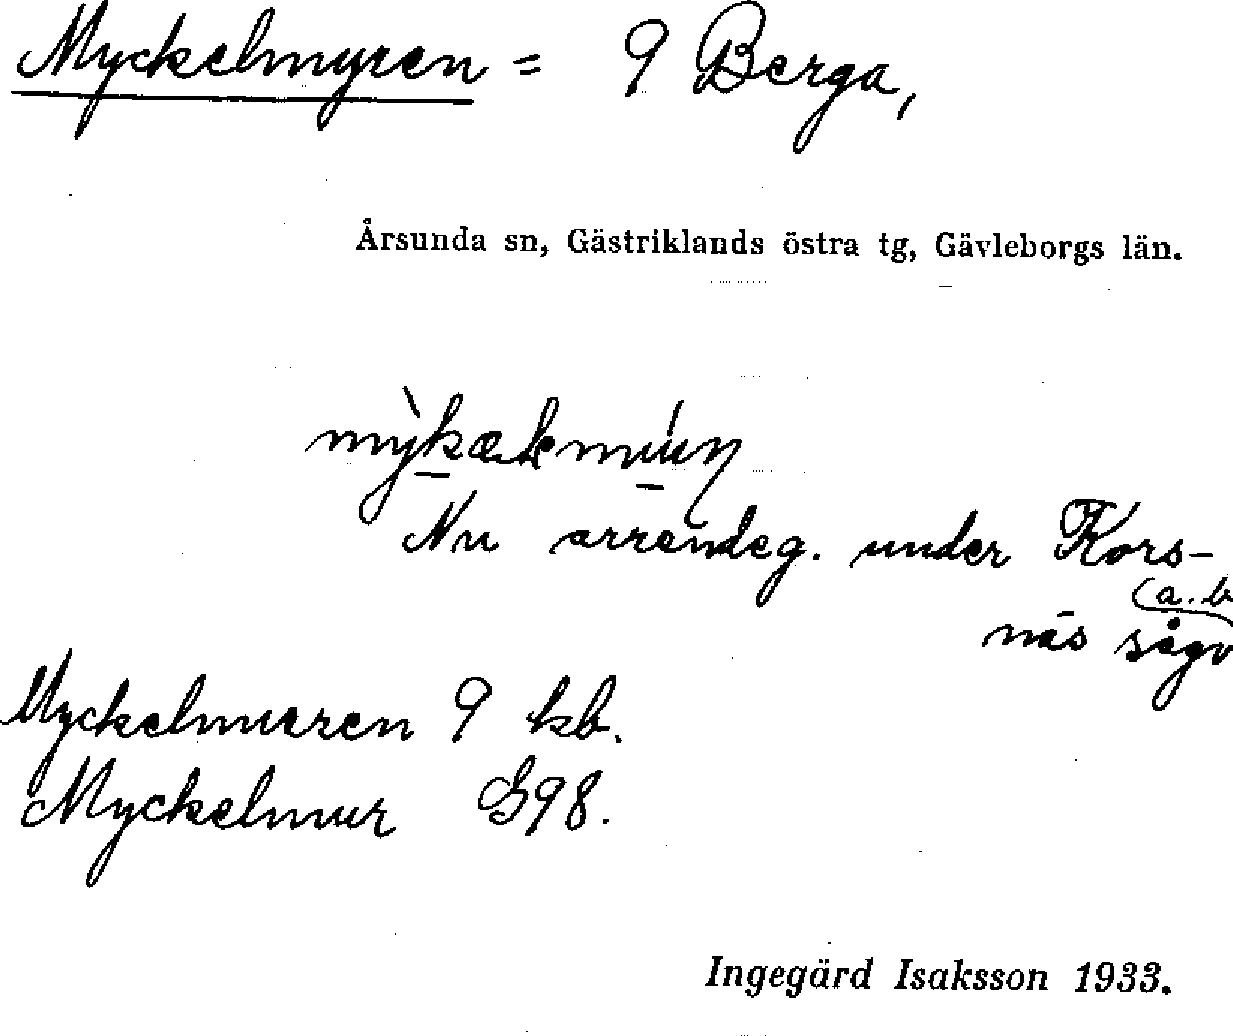 Myckelmyren = 9 Berga,
Årsunda sn, Gästriklands östra tg, Gävleborgs län.
Nu arrendeg. under Kors-
näs sågv
(a.b
Myckelmuren 9 kb.
Myckelmur G98.
Ingegärd Isaksson 1933.